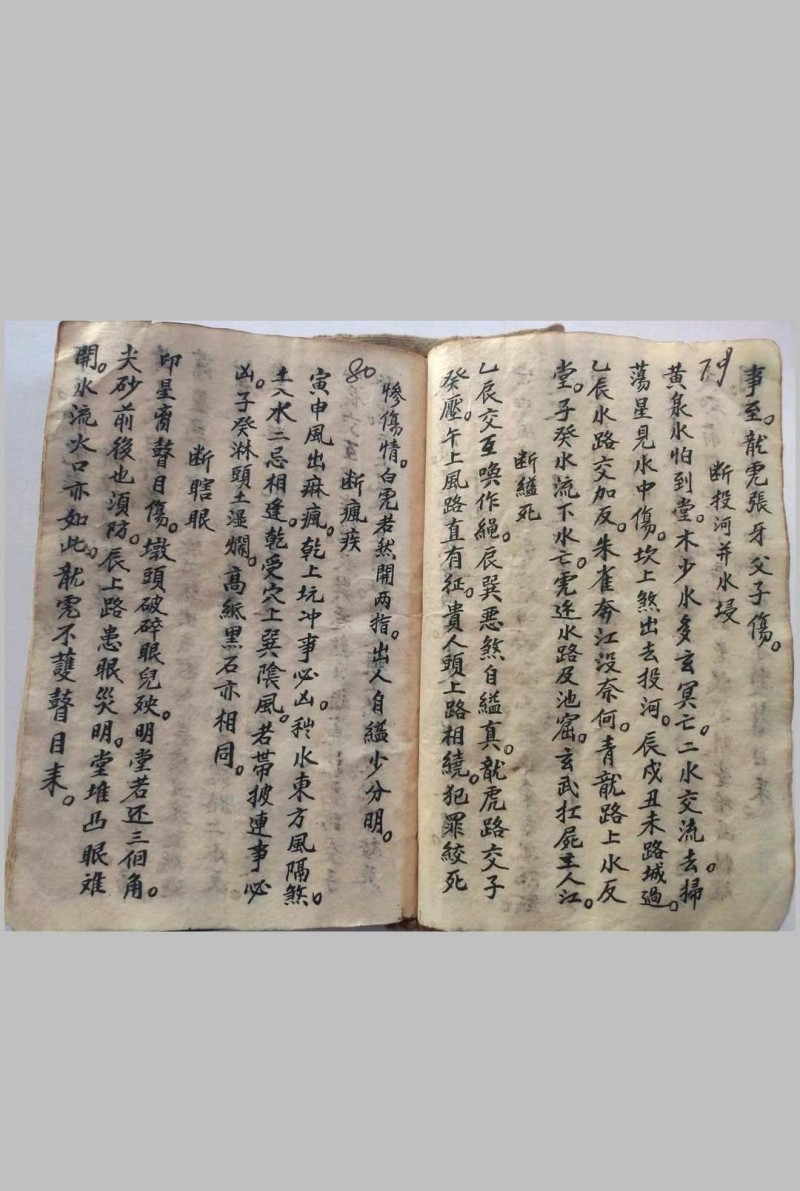 事至。龍虎張牙父子傷。
79
断投河并水埐
黄泉水怕到堂。木少水多玄冥亡。二水交流去掃
蕩星見水中傷。坎上煞出去投河。辰戌丑未路城過。
乙辰水路交加反。朱雀奔江没奈何。青龍路上水反
堂。子癸水流下水亡。虎逩水路及池窟。玄武扛屍主人江。
断縊死
乙辰交互喚作繩。辰巽悪煞自縊真。龍虎路交子
癸壓。午上風路直有征。貴人頭上路相繞。犯罪絞死
惨傷情。白虎若然開両指。出人自縊少分明。
80
断瘋疾
寅申風出麻瘋。乾上坑冲事必凶。秏水東方風隔煞。
土入水二忌相逢。乾受穴上巽陰風。若帶披連事必
凶。子癸淋頭土湿爛。高𦀰黒石亦相同。
断瞎眼
印星窗瞽目傷。墩頭破碎眼兒殃。明堂若还三個角。
尖砂前後也須防。辰上路患眼災明。堂堆凸眼难
開。水流火口亦如此。龍虎不護瞽目来。